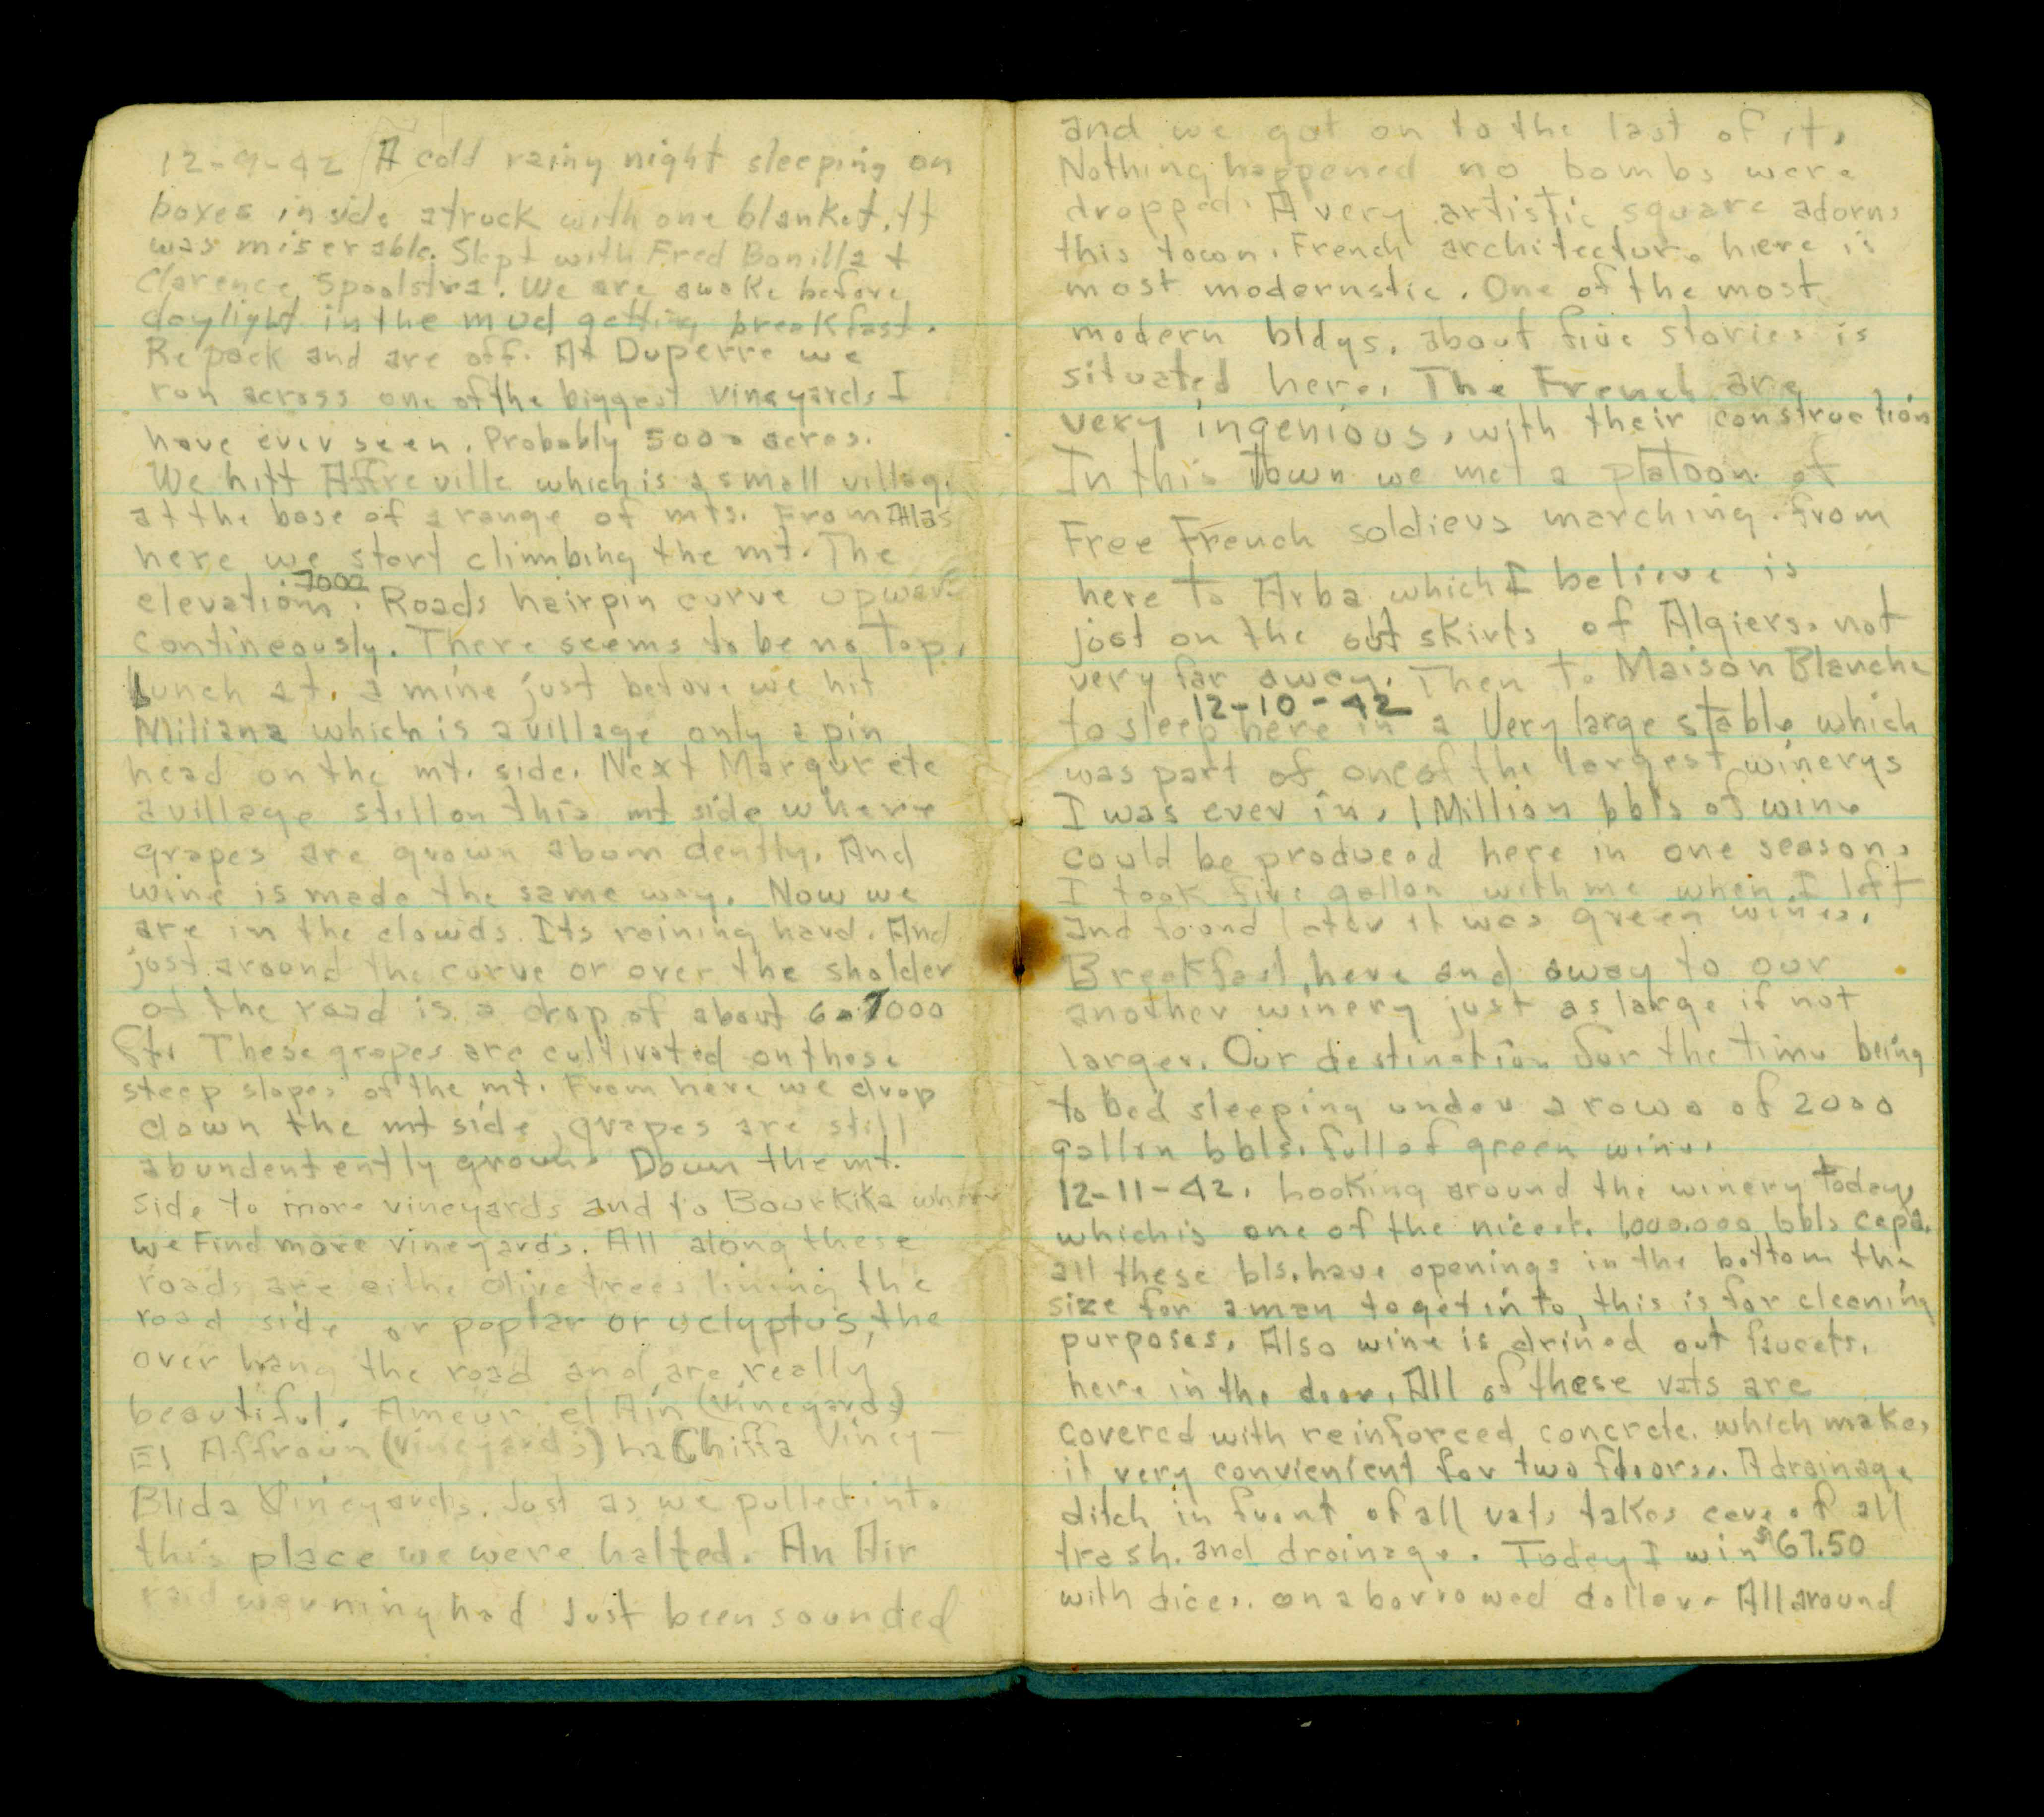 12-9-42 A cold rainy night sleeping on
boxes inside a truck with one blanket. It
was miserable. Slept with Fred Bonilla +
Clarence Spoolstra. We are awoke before
daylight in the mud getting breakfast.
Repack and are off. At Duperre we
run across one of the biggest vineyards I
have ever seen. Probably 5000 acres.
We hitt Affreville which is a small village
at the base of a range of mts. From Atlas
here we start climbing the mt. The
7000
elevation. Roads hairpin curve upward
contineously. There seems to be no Top.
Lunch at. a mine just before we hit
Miliana which is a village only a pin
head on the mt. side. Next Margurete
a village still on this mt side where
grapes are grown abumdently. And
wine is made the same way. Now we
are in the clowds. Its raining hard. And
just around the curve or over the sholder
of the road is a drop of about 6 a 7000
ft. These grapes are cultivated on these
steep slopes of the mt. From here we drop
down the mt side, grapes are still
abundentently grown. Down the mt.
side to more vineyards and to Bourkika where
we Find more vineyards. All along these
roads are eithe Olive trees lining the
road side or poplar or uclyptus, the
over hang the road and are really
beautiful. Ameur el Ain (vineyards)
El Affroun (vineyards) La Chiffa Viney-
Blida Vineyards. Just as we pulled into
this place we were halted. An Air
raid warning had Just been sounded
and we got on to the last of it.
Nothing happened no bombs were
dropped. A very artistic square adorns
this town. French architecture here is
most modernstic. One of the most
modern bldgs. about five stories is
situated here. The French are
very ingenious, with their construction
In this Town we met a platoon of
Free French soldiers marching. from
here to Arba which I believe is
just on the out skirts of Algiers. not
very far away. Then to Maison Blanche
12-10-42
to sleep here in a Very large stable which
was part of one of the largest winerys
I was ever in. 1 Million bbls of wine
could be produced here in one season.
I took five gallon with me when I left
and found later it was green wines.
Breakfast here and away to our
another winery just as large if not
larger. Our destination for the time being
to bed sleeping under a rows of 2000
gallon bbls. full of green wine.
12-11-42. Looking around the winery today,
which is one of the nicest. 1,000,000 bbls capa.
all these bls. have openings in the bottom the
size for a man to get in to, this is for cleaning
purposes. Also wine is drined out faucets.
here in the door. All of these vats are
covered with reinforced concrete. which makes
it very convienient for two floors. A drainage
ditch in front of all vats takes care of all
trash. and drainage. Today I win $67.50
with dice.. on a borrowed dollar. All around